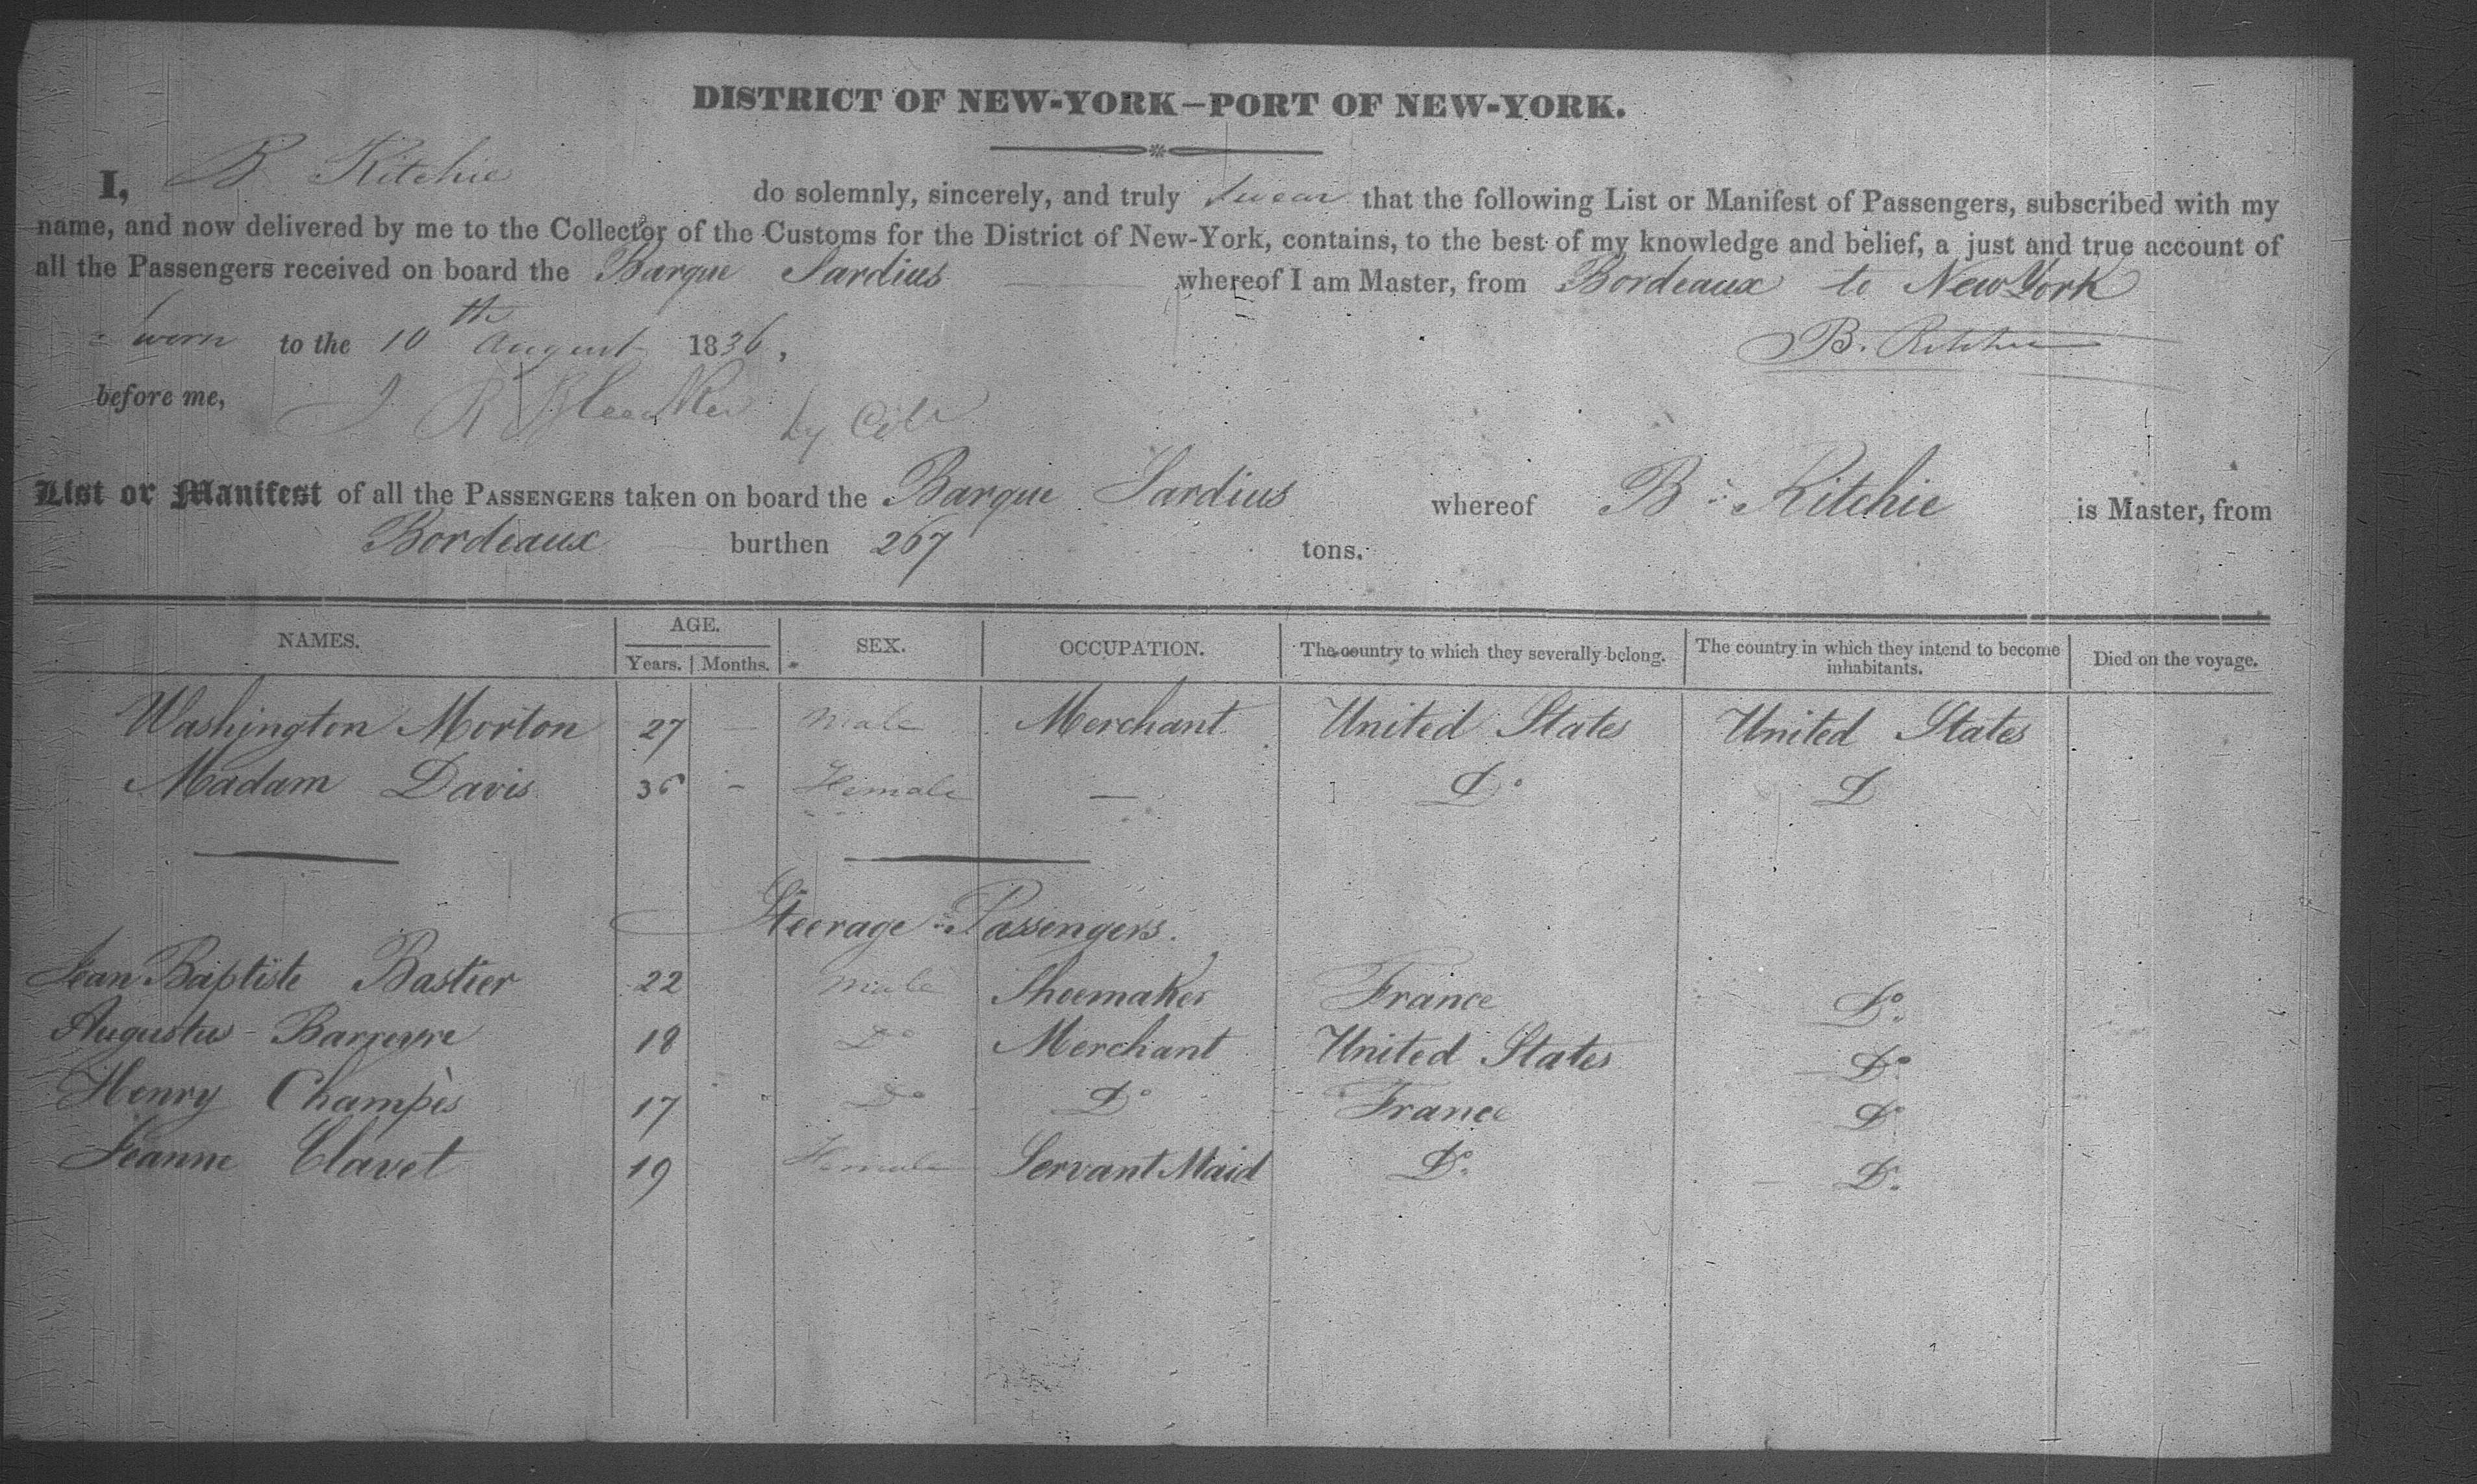 DISTRICT OF NEW-YORK—PORT OF NEW-YORK.
I, B Ritchie do solemnly, sincerely, and truly swear that the following List or Manifest of Passengers, subscribed with my
name, and now delivered by me to the Collector of the Customs for the District of New-York, contains, to the best of my knowledge and belief, a just and true account of
all the Passengers received on board the Barque Sardius whereof I am Master, from Bordeaux to New York
Sworn to the 10th August 1836, B. Ritchie
before me, J R Bleecker
List or Manifest of all the PASSENGERS taken on board the Barque Sardius whereof B Ritchie is Master, from
Bordeaux burthen 267 tons.
NAMES. AGE. SEX. OCCUPATION. The country to which they severally belong. The country in which they intend to become inhabitants. Died on the voyage.
Years. Months.
Washington Morton 27 — Male Merchant United States United States
Madam Davis 36 — Female — Do D
Steerage Passengers.
Jean Baptiste Bastier 22 Male Shoemaker France Do
Augustus Barreyre 18 Do Merchant United States Do
Henry Champès 17 Do Do France Do
Jeanne Clavet 19 Female Servant Maid Do Do